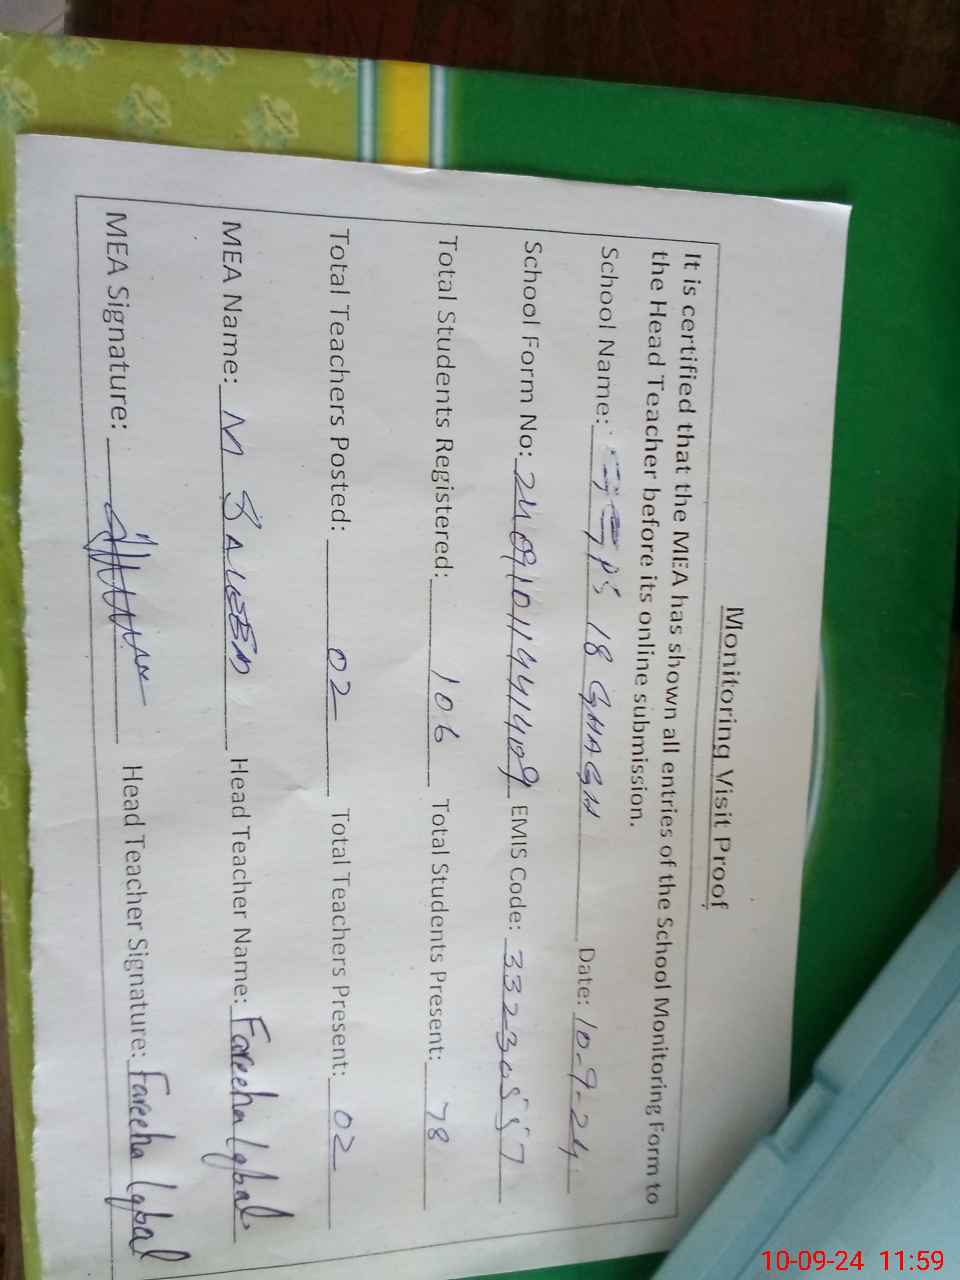 Monitoring Visit Proof
It is certified that the MEA has shown all entries of the School Monitoring Form to
the Head Teacher before its online submission.
School Name: 18 GHAGH Date: 10-9-24
School Form No: EMIS Code: 33230557
Total Students Registered: 106 Total Students Present: 78
Total Teachers Posted: 02 Total Teachers Present: 02
MEA Name: M SALEEM Head Teacher Name: Fareeha Iqbal
MEA Signature: Head Teacher Signature: Fareeha Iqbal
10-09-24 11:59